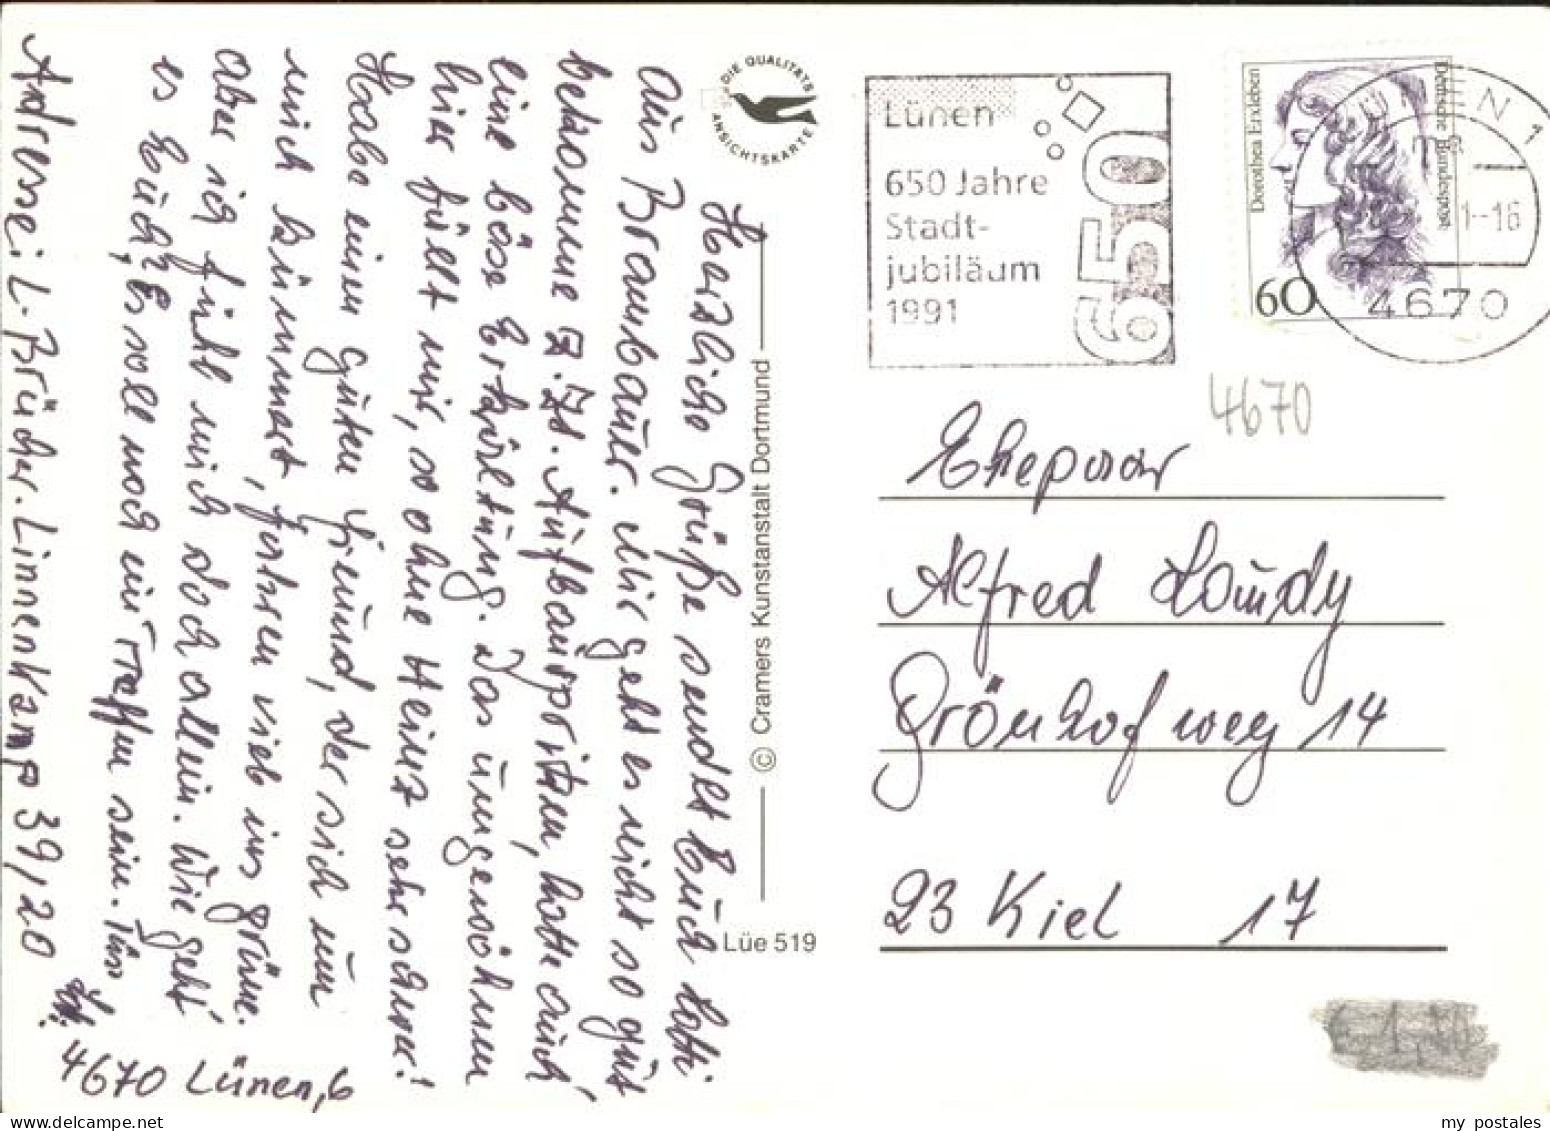 Herzliche Grüße sendet Euch Lotti
aus Brambauer. Mir geht es nicht so gut
bekomme z.Zt. Aufbauspritzen, hatte auch
eine böse Erkältung. Das umgewöhnen
hier fällt mir, so ohne Heinz sehr schwer!
Habe einen guten Freund, der sich um
mich kümmert, fahren viel ins grüne.
aber ich fühl mich doch allein. Wie geht
es Euch? Es soll noch ein Treffen sein.
Adresse: L. Brücher. Linnenkamp 39/20
4670 Lünen, 6
DIE QUALITÄTS
ANSICHTSKARTE
© Cramers Kunstanstalt Dortmund
Lüe 519
Lünen
650 Jahre
Stadt-
jubiläum
1991
650
Dorothea Erxleben
Deutsche Bundespost
60
N 1
1--16
4670
4670
Ehepaar
Alfred
Grönhofweg 14
23 Kiel 17
my postales